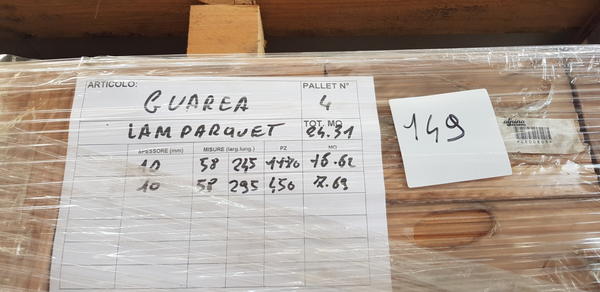 ARTICOLO:
GUAREA
LAMPARQUET
PALLET N°
4
TOT. MQ
24.31
SPESSORE (mm) MISURE (larg.lung.) PZ MQ
10 58 245 1170 16.62
10 58 295 450 7.69
149